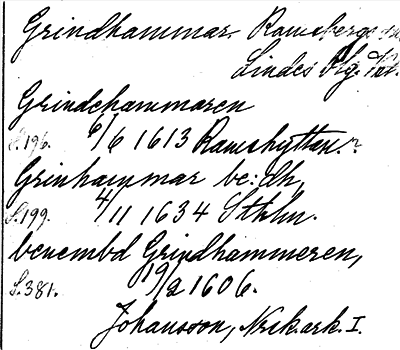 Grindhammar Ramsbergs sn
Lindes Blg. Vstl.
Grindehammaren
S.196. 6/6 1613 Ramshyttan.
Grinhammar be: dh,
S.199. 4/11 1634 Sthlm.
benembd Grindhammeren,
S.381. 19/2 1606.
Johansson, Nrsk.ark. I.